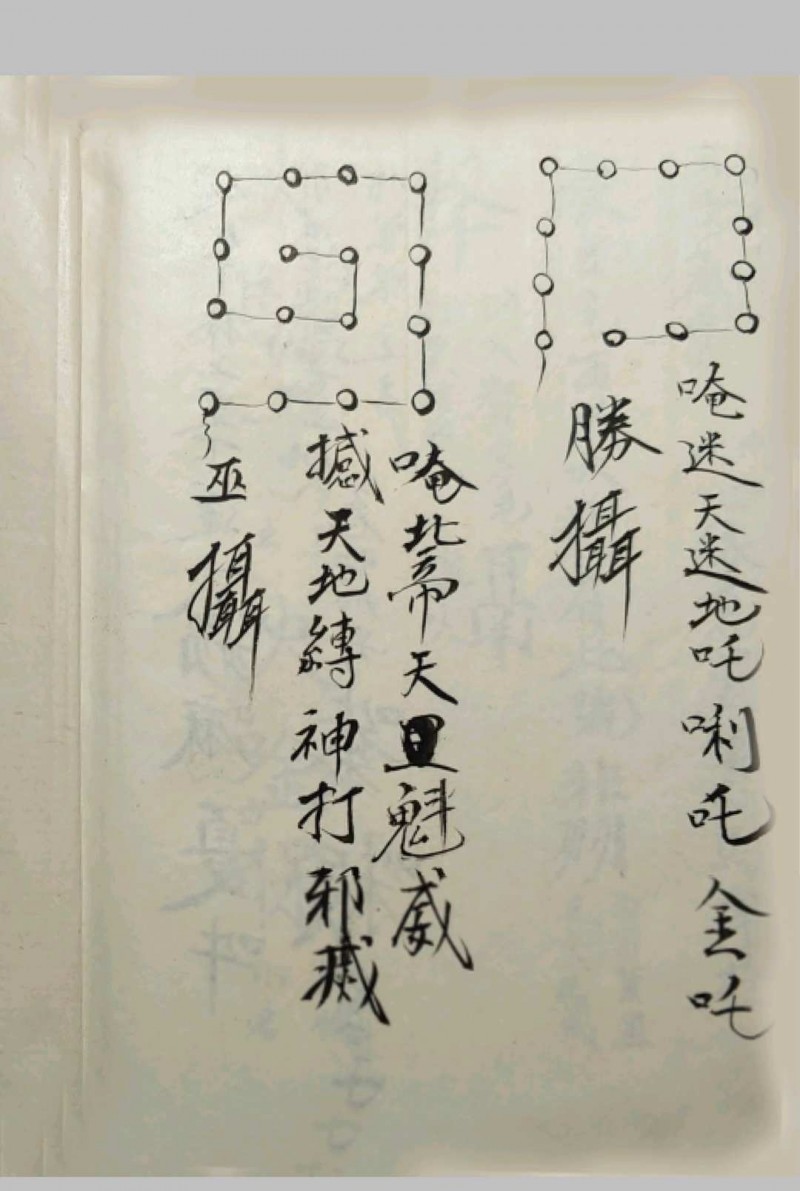 唵迷天迷地吒唎吒金吒
勝攝
唵北帝天魁威
撼天地縛神打邪
巫攝